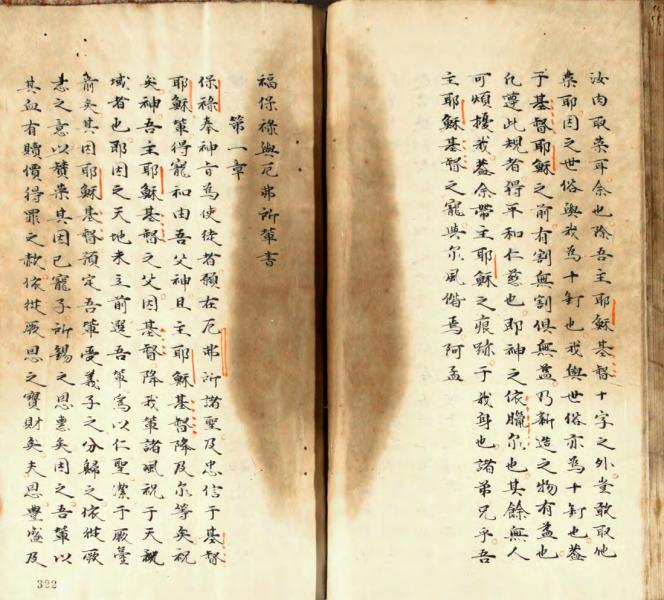 汝肉取榮耳余也除吾主耶穌基督十字之外豈敢取他
榮耶因之世俗與我為十釘也我與世俗亦為十釘也蓋
于基督耶穌之前有割無割俱無益乃新造之物有益也
凡遵此規者得平和仁慈也即神之依臘尔也其餘無人
可煩擾我蓋余帶主耶穌之痕跡于我身也諸弟兄乎吾
主耶穌基督之寵與尔風偕焉阿孟
福保祿與厄弗所輩書
第一章
保祿奉神旨為使徒者願在厄弗所諸聖及忠信于基督
耶穌輩得寵和由吾父神且主耶穌基督降及尔等矣祝
矣神吾主耶穌基督之父因基督降我輩諸風祝于天
域者也耶因之天地未立前選吾輩為以仁聖潔于厥臺
前矣其因耶穌基督預定吾輩受義子之分歸之依從厥
意之意以贊榮其因己寵子所錫之恩惠矣因之吾輩以
其血有贖價得罪之赦依從厥恩之寶財矣夫恩豐盛及
322